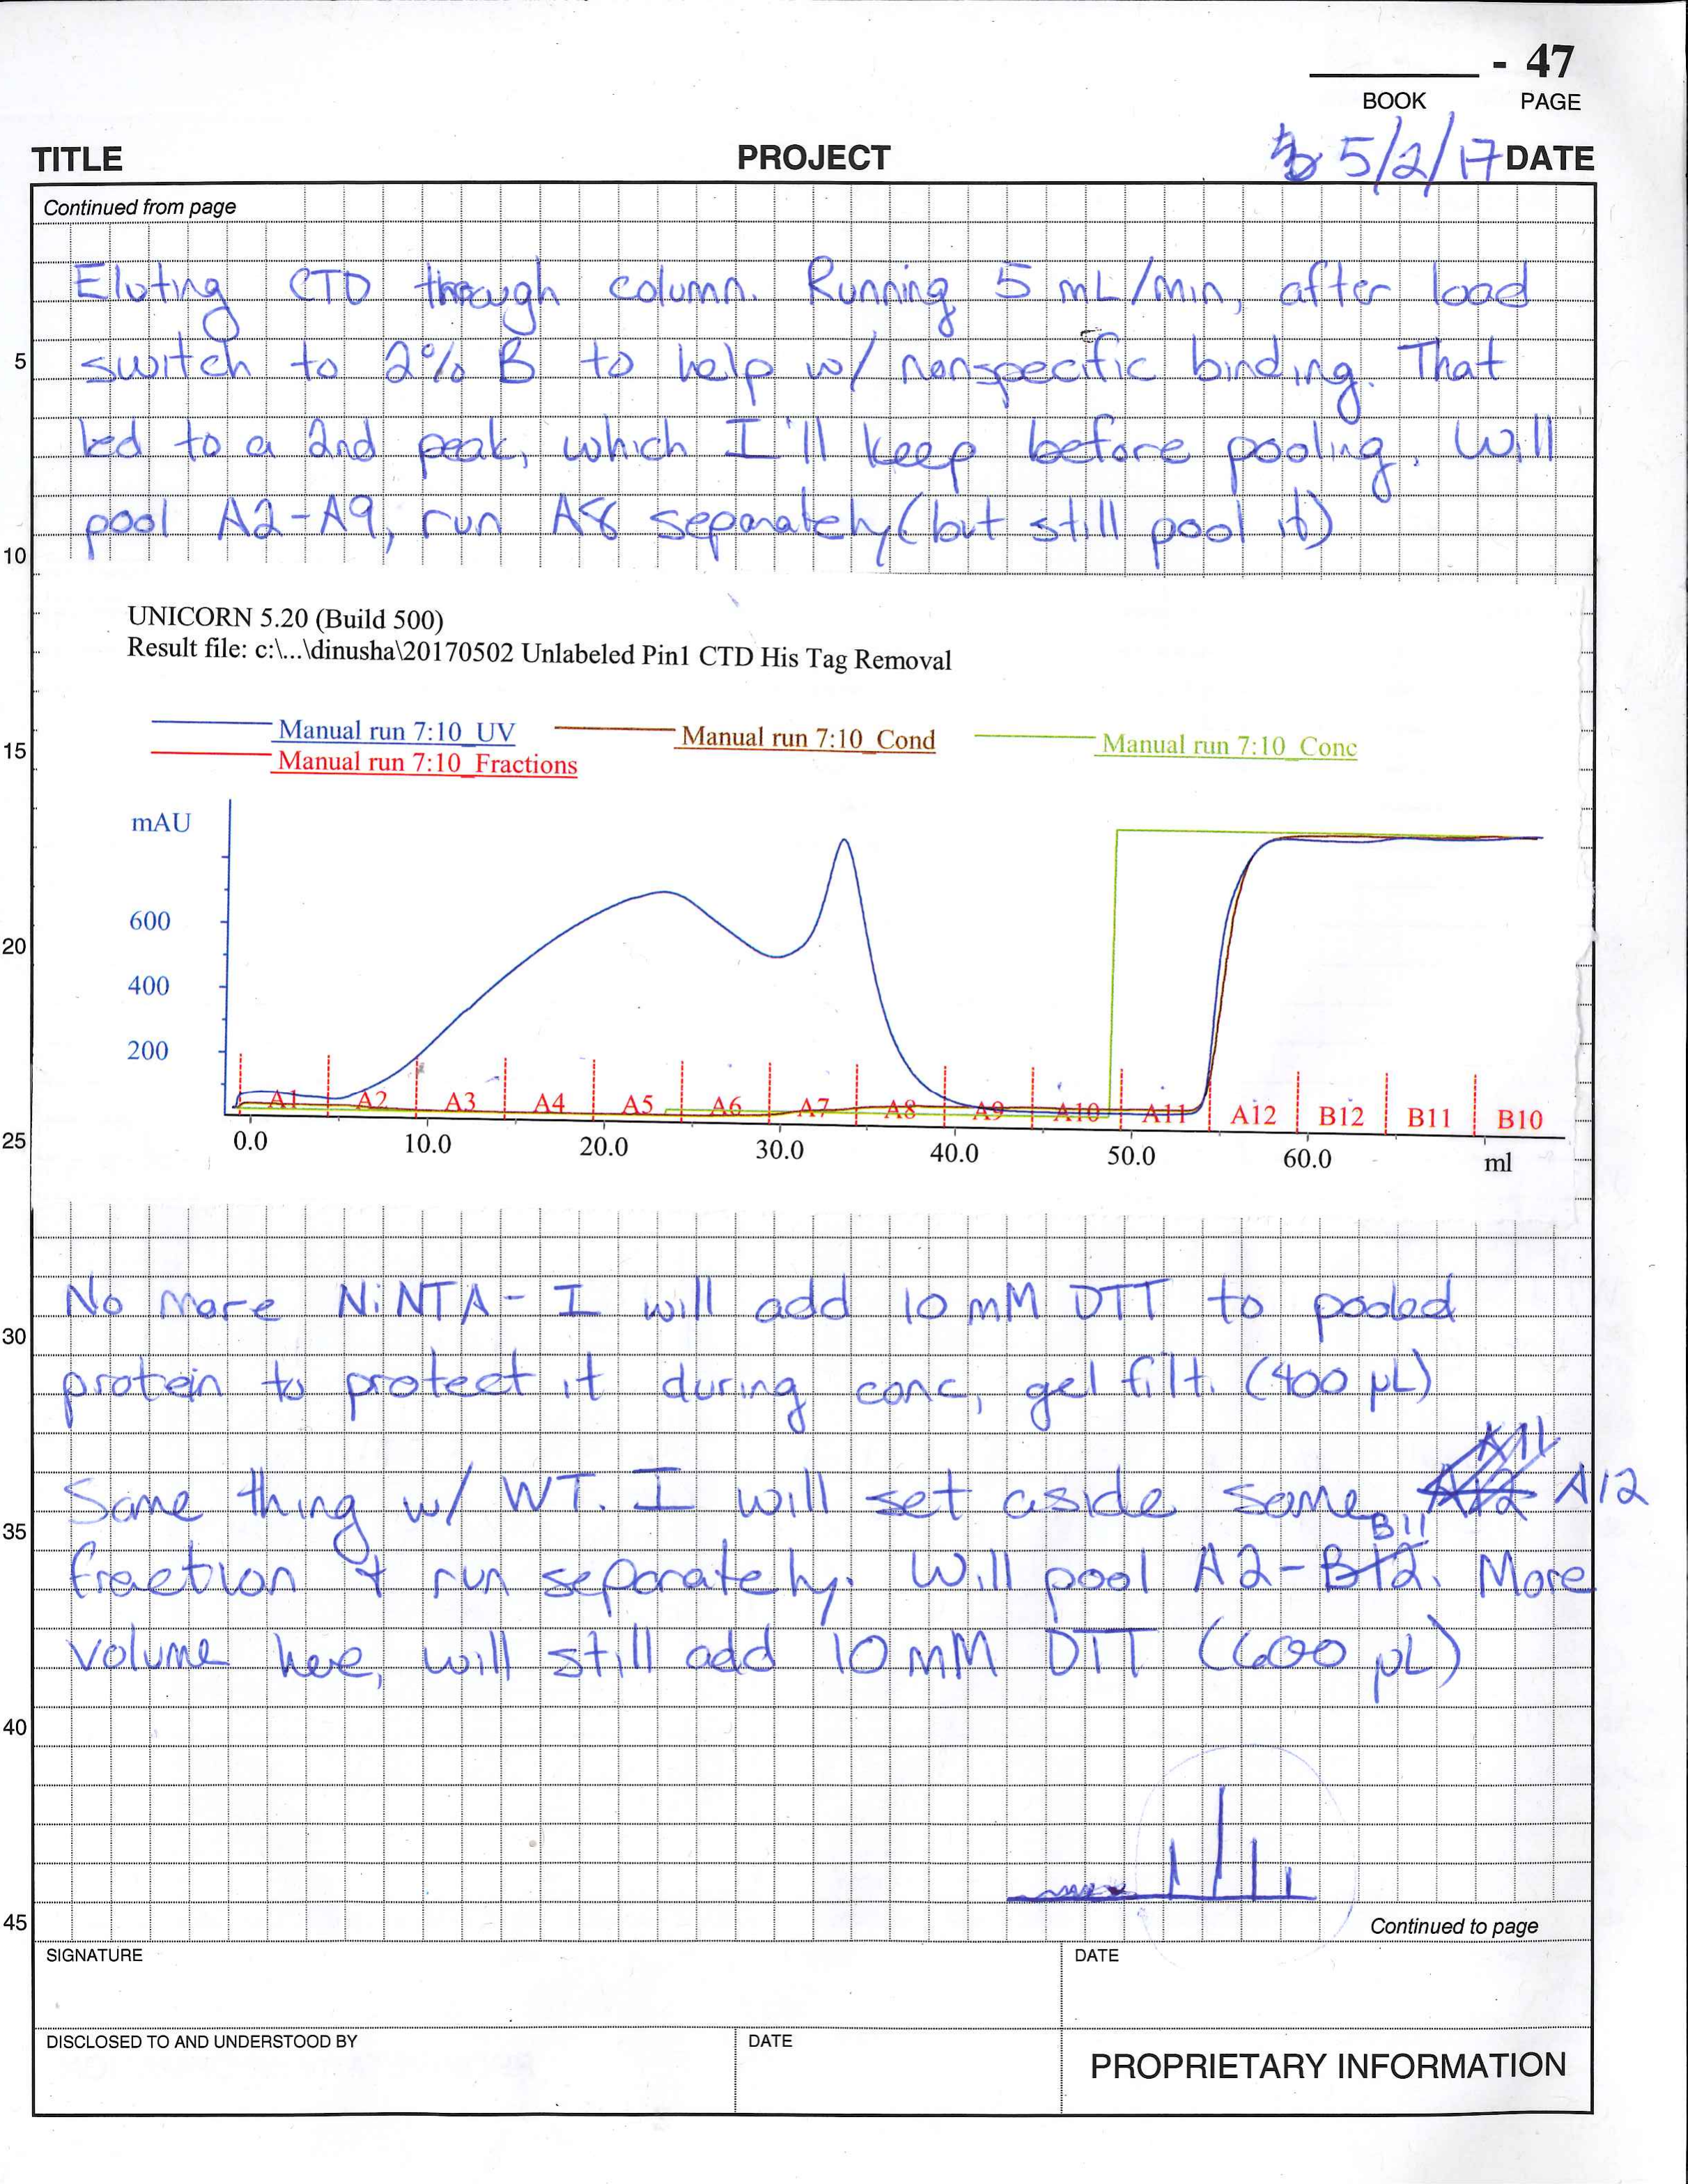 - 47
BOOK PAGE
TITLE PROJECT 5/2/17 DATE
Continued from page
Eluting CTD through column. Running 5 mL/min, after load
5 switch to 2% B to help w/ nonspecific binding. That
led to a 2nd peak, which I'll keep before pooling. Will
pool A2-A9, run A8 separately (but still pool it)
10
UNICORN 5.20 (Build 500)
Result file: c:\...\dinusha\20170502 Unlabeled Pin1 CTD His Tag Removal
Manual run 7:10_UV Manual run 7:10_Cond Manual run 7:10_Conc
15
Manual run 7:10_Fractions
mAU
600
20
400
200
A1 A2 A3 A4 A5 A6 A7 A8 A9 A10 A11 A12 B12 B11 B10
25
0.0 10.0 20.0 30.0 40.0 50.0 60.0 ml
No more NiNTA - I will add 10 mM DTT to pooled
30
protein to protect it during conc, gel filt. (400 µL)
A11
Same thing w/ WT. I will set aside some A12 A12
35
B11
fraction + run separately. Will pool A2-B12. More
volume here, will still add 10 mM DTT (600 µL)
40
45
Continued to page
SIGNATURE DATE
DISCLOSED TO AND UNDERSTOOD BY DATE
PROPRIETARY INFORMATION